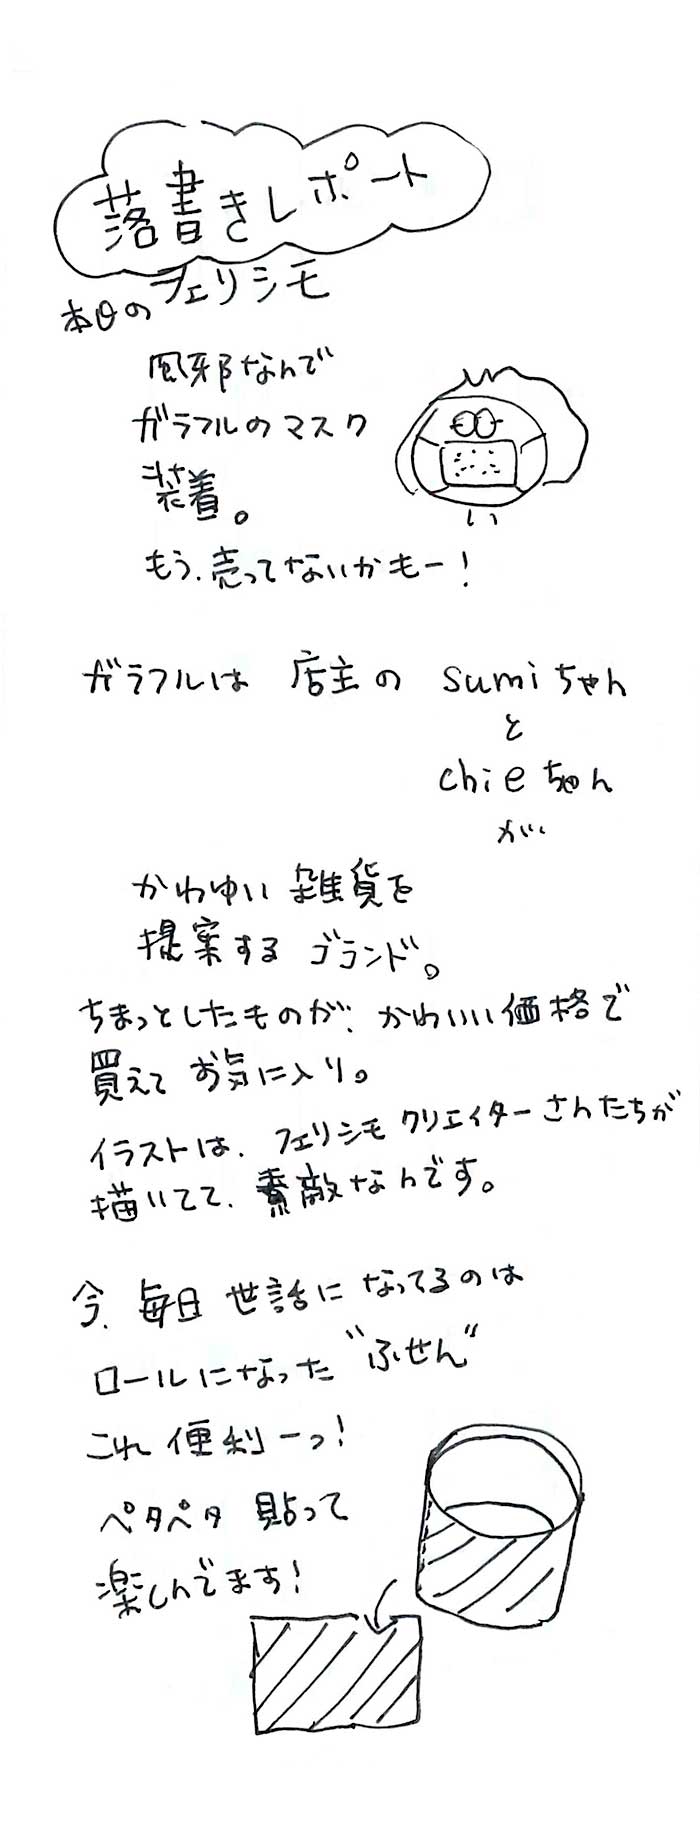 落書きレポート
本日のフェリシモ
風邪なんで
ガラフルのマスク
装着。
もう、売ってないかもー！
ガラフルは 店主の sumiちゃん
と
chieちゃん
が、
かわゆい 雑貨を
提案する ブランド。
ちまっとしたものが、かわいい価格で
買えて お気に入り。
イラストは、フェリシモクリエイターさんたちが
描いてて、素敵なんです。
今、毎日 世話に なってるのは
ロールになった “ふせん”
これ 便利ーっ！
ペタペタ 貼って
楽しんでます！